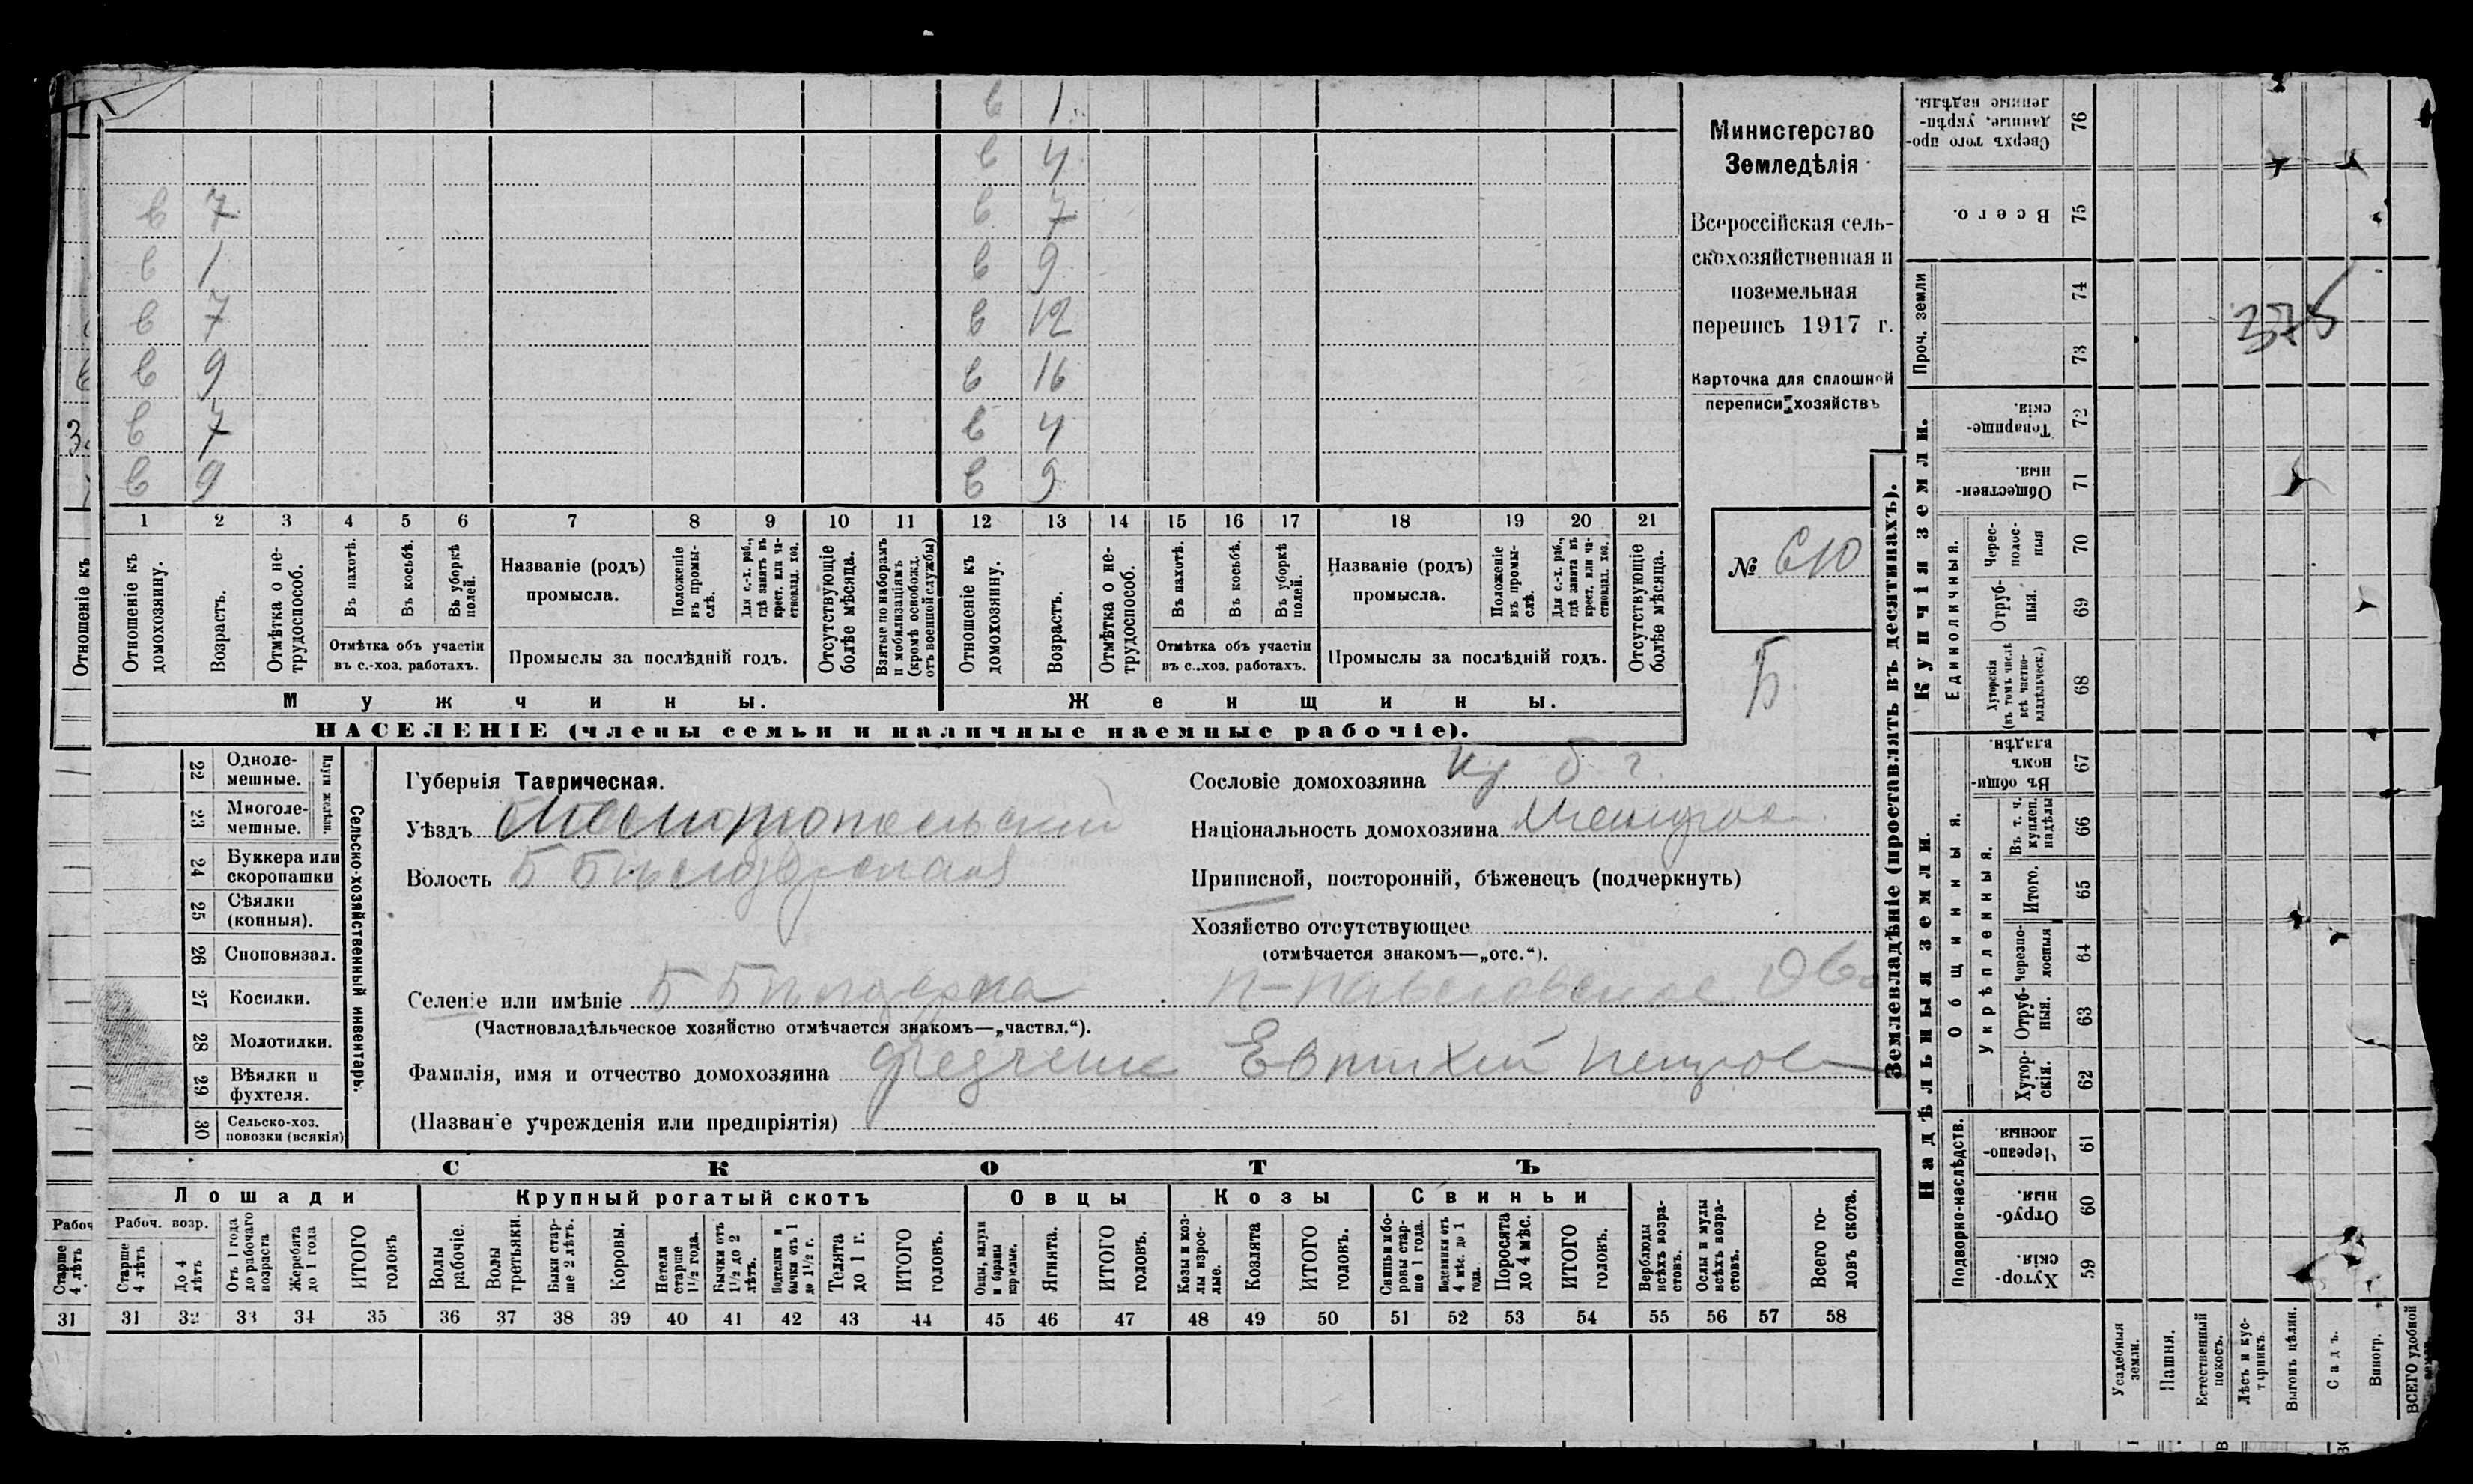 в 1
в 4
в 7 в 7
в 1 в 9
в 7 в 12
в 9 в 16
в 7 в 4
в 9 в 9
1 2 3 4 5 6 7 8 9 10 11 12 13 14 15 16 17 18 19 20 21
Отношеніе къ
Отношеніе къ домохозяину.
Возрастъ.
Отмѣтка о не-
трудоспособ.
Въ пахотѣ.
Въ косьбѣ.
Въ уборкѣ
полей.
Отмѣтка объ участіи
въ с.-хоз. работахъ.
Названіе (родъ)
промысла.
Положеніе
въ промы-
слѣ.
Для с.-х. раб.,
гдѣ занятъ въ
крест. или ча-
стновлад. хоз.
Промыслы за послѣдній годъ.
Отсутствующіе
болѣе мѣсяца.
Взятые по наборамъ
и мобилизаціямъ
(кромѣ освобожд.
отъ военной службы)
Отношеніе къ
домохозяину.
Возрастъ.
Отмѣтка о не-
трудоспособ.
Въ пахотѣ.
Въ косьбѣ.
Въ уборкѣ
полей.
Отмѣтка объ участіи
въ с..хоз. работахъ.
Названіе (родъ)
промысла.
Положеніе
въ промы-
слѣ.
Для с.-х. раб.,
гдѣ занята въ
крест. или ча-
стновлад. хоз.
Промыслы за послѣдній годъ.
Отсутствующіе
болѣе мѣсяца.
Мужчины.
Женщины.
НАСЕЛЕНІЕ (члены семьи и наличные наемные рабочіе).
Министерство
Земледѣлія
Всероссійская сель-
скохозяйственная и
поземельная
перепись 1917 г.
Карточка для сплошной
переписи хозяйствъ
№ 610
Б
22 Одноле-
мешные.
23 Многоле-
мешные.
Плуги желѣзн.
24 Буккера или
скоропашки
25 Сѣялки
(конныя).
26 Сноповязал.
27 Косилки.
28 Молотилки.
29 Вѣялки и
фухтеля.
30 Сельско-хоз.
повозки (всякія)
Сельско-хозяйственный инвентарь.
Губернія Таврическая.
Уѣздъ Мелитопольский
Волость Б Белозерская
Селеніе или имѣніе Б Белозерка
(Частновладѣльческое хозяйство отмѣчается знакомъ—„частвл.“).
Фамилія, имя и отчество домохозяина Федченк Евтихий Петров
(Названіе учрежденія или предпріятія)
Сословіе домохозяина кр б г.
Національность домохозяина
Приписной, посторонній, бѣженецъ (подчеркнуть)
Хозяйство отсутствующее
(отмѣчается знакомъ—„отс.“).
СКОТЪ
Лошади
Крупный рогатый скотъ
Овцы
Козы
Свиньи
Рабоч. возр.
Старше
4 лѣтъ
До 4
лѣтъ
Отъ 1 года
до рабочаго
возраста
Жеребята
до 1 года
ИТОГО
головъ
Волы
рабочіе.
Волы
третьяки.
Быки стар-
ше 2 лѣтъ.
Коровы.
Нетели
старше
1½ года.
Бычки отъ
1½ до 2
лѣтъ.
Подтелки и
бычки отъ 1
до 1½ г.
Телята
до 1 г.
ИТОГО
головъ.
Овцы, валухи
и бараны
взрослые.
Ягнята.
ИТОГО
головъ.
Козы и коз-
лы взрос-
лые.
Козлята
ИТОГО
головъ.
Свиньи и бо-
ровы стар-
ше 1 года.
Подсвинки отъ
4 мѣс. до 1
года.
Поросята
до 4 мѣс.
ИТОГО
головъ.
Верблюды
всѣхъ возра-
стовъ.
Ослы и мулы
всѣхъ возра-
стовъ.
Всего го-
ловъ скота.
31 31 32 33 34 35 36 37 38 39 40 41 42 43 44 45 46 47 48 49 50 51 52 53 54 55 56 57 58
Землевладѣніе (проставлять въ десятинахъ).
Купчія земли.
Надѣльныя земли.
Сверхъ того про-
данные, укрѣп-
ленные надѣлы.
76
Всего.
75
Проч. земли
74
73
375
Товарище-
скія.
72
Обществен-
ныя.
71
Единоличныя.
Черес-
полос-
ныя
70
Отруб-
ныя.
69
Хуторскія
(въ томъ числѣ
всѣ частно-
владѣльческ.)
68
Общинныя.
Въ общи-
номъ
владѣн.
67
Укрѣпленныя.
Въ т. ч.
куплен.
надѣлы
66
Итого.
65
Черезпо-
лосныя
64
Отруб-
ныя.
63
Хутор-
скія.
62
Подворно-наслѣдств.
Черезпо-
лосныя.
61
Отруб-
ныя.
60
Хутор-
скія.
59
Усадебныя
земли.
Пашня.
Естественный
покосъ.
Лѣсъ и кус-
тарникъ.
Выгонъ цѣлин.
Садъ.
Виногр.
ВСЕГО удобной